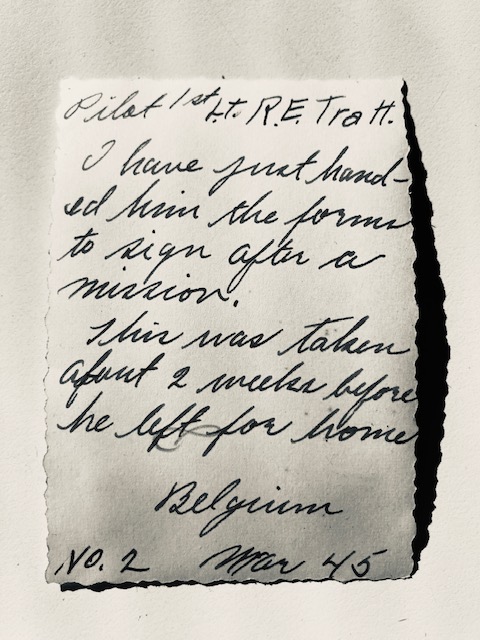 Pilot 1st Lt. R.E. Tratt.
I have just hand-
ed him the forms
to sign after a
mission.
This was taken
about 2 weeks before
he left for home
Belgium
NO. 2 Mar 45